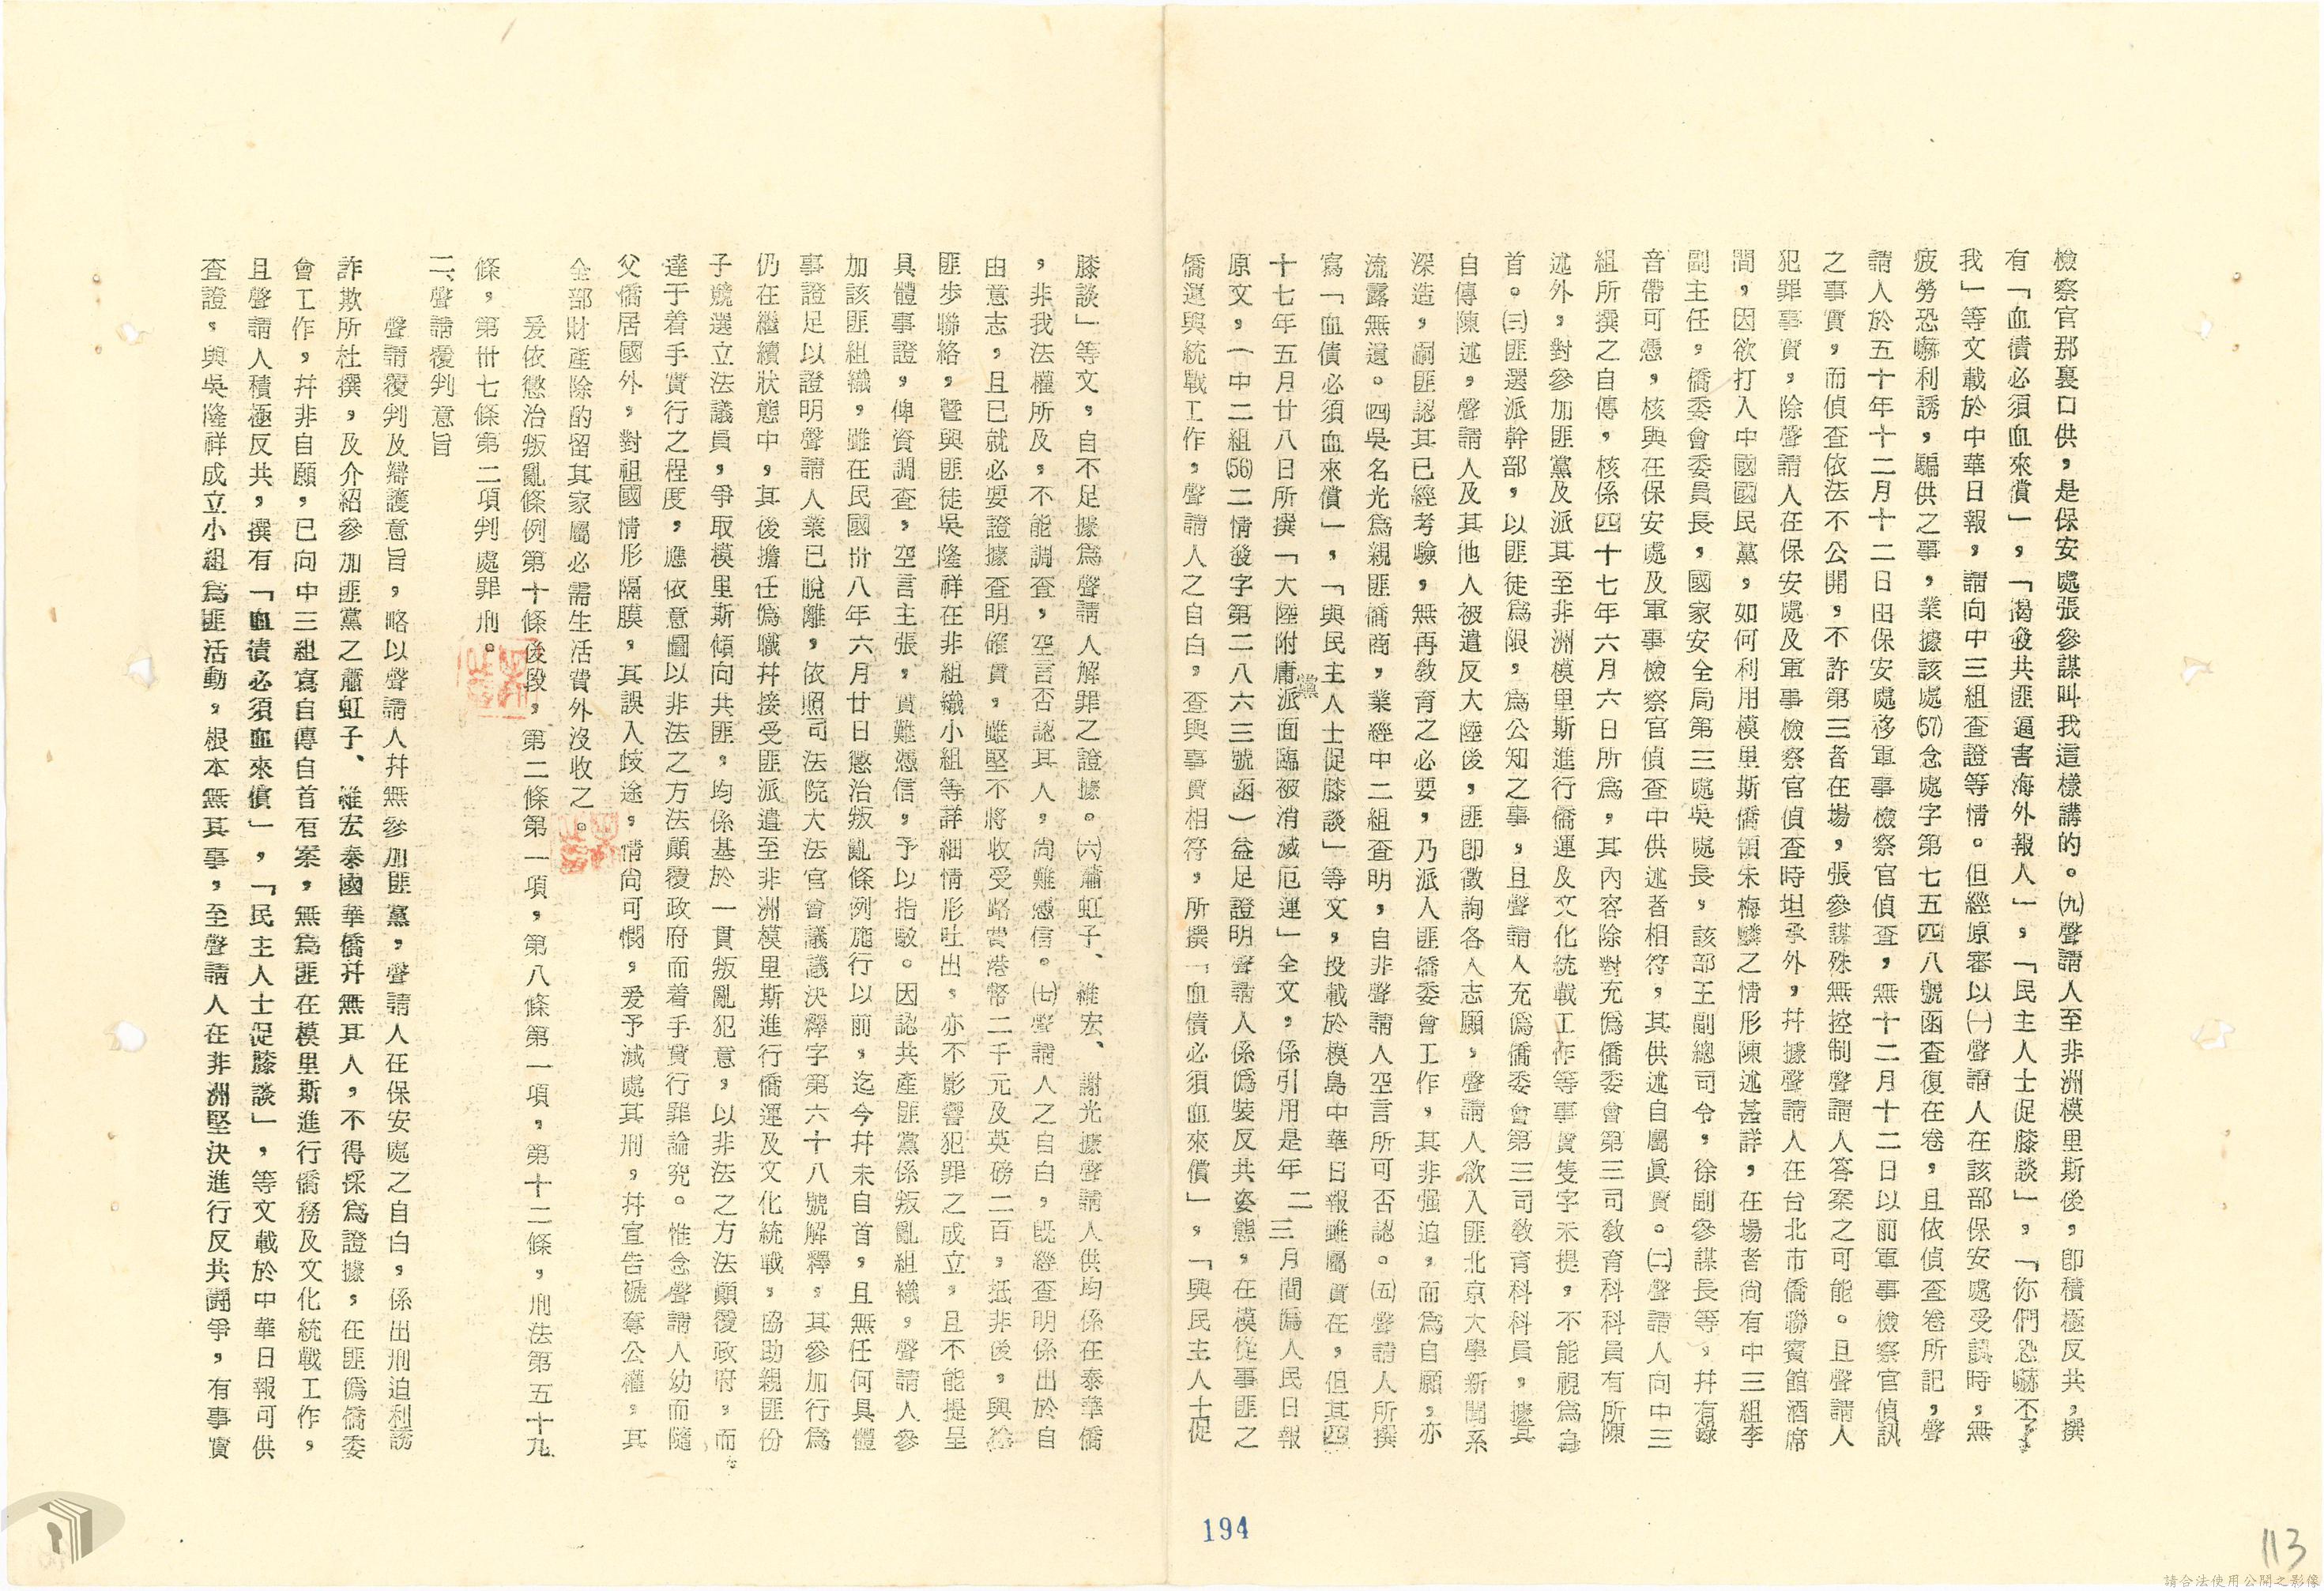 檢察官那裏口供，是保安處張參謀叫我這樣講的。㈨聲請人至非洲模里斯後，卽積極反共，撰
有「血債必須血來償」，「揭發共匪逼害海外報人」，「民主人士促膝談」，「你們恐嚇不了
我」等文載於中華日報，請向中三組查證等情。但經原審以㈠聲請人在該部保安處受訊時，無
疲勞恐嚇利誘，騙供之事，業據該處(57)念處字第七五四八號函查復在卷，且依偵查卷所記，聲
請人於五十年十二月十二日由保安處移軍事檢察官偵查，無十二月十二日以前軍事檢察官偵訊
之事實，而偵查依法不公開，不許第三者在場，張參謀殊無控制聲請人答案之可能。且聲請人
犯罪事實，除聲請人在保安處及軍事檢察官偵查時坦承外，幷據聲請人在台北市僑聯賓館酒席
間，因欲打入中國國民黨，如何利用模里斯僑領朱梅麟之情形陳述甚詳，在場者尙有中三組李
副主任，僑委會委員長，國家安全局第三處吳處長，該部王副總司令，徐副參謀長等，幷有錄
音帶可憑，核與在保安處及軍事檢察官偵查中供述者相符，其供述自屬眞實。㈡聲請人向中三
組所撰之自傳，核係四十七年六月六日所為，其內容除對充僞僑委會第三司敎育科科員有所陳
述外，對參加匪黨及派其至非洲模里斯進行僑運及文化統戰工作等事實隻字未提，不能視為自
首。㈢匪選派幹部，以匪徒爲限，爲公知之事，且聲請人充僞僑委會第三司敎育科科員，據其
自傳陳述，聲請人及其他人被遣反大陸後，匪卽徵詢各人志願，聲請人欲入匪北京大學新聞系
深造，嗣匪認其已經考驗，無再敎育之必要，乃派人匪僑委會工作，其非强迫，而爲自願，亦
流露無遺。㈣吳名光爲親匪僑商，業經中二組查明，自非聲請人空言所可否認。㈤聲請人所撰
寫「血債必須血來償」，「與民主人士促膝談」等文，投載於模島中華日報雖屬實在，但其四
十七年五月廿八日所撰「大陸附庸黨派面臨被消滅厄運」全文，係引用是年二三月間僞人民日報
原文，（中二組(56)二情發字第二八六三號函）益足證明聲請人係僞裝反共姿態，在模從事匪之
僑運與統戰工作，聲請人之自白，查與事實相符，所撰「血債必須血來償」，「與民主人士促
膝談」等文，自不足據爲聲請人解罪之證據。㈥蕭虹子、維宏、謝光據聲請人供均係在泰華僑
，非我法權所及，不能調查，空言否認其人，尙難憑信。㈦聲請人之自白，旣經查明係出於自
由意志，且已就必要證據查明確實，雖堅不將收受路費港幣二千元及英磅二百，抵非後，與徐
匪步聯絡，暨與匪徒吳隆祥在非組織小組等詳細情形吐出，亦不影響犯罪之成立，且不能提呈
具體事證，俾資調查，空言主張，實難憑信，予以指駁。因認共產匪黨係叛亂組織，聲請人參
加該匪組織，雖在民國卅八年六月廿日懲治叛亂條例施行以前，迄今幷未自首，且無任何具體
事證足以證明聲請人業已脫離，依照司法院大法官會議議決釋字第六十八號解釋，其參加行爲
仍在繼續狀態中，其後擔任僞職幷接受匪派遣至非洲模里斯進行僑運及文化統戰，協助親匪份
子競選立法議員，爭取模里斯傾向共匪，均係基於一貫叛亂犯意，以非法之方法顚覆政府，而
達于着手實行之程度，應依意圖以非法之方法顚覆政府而着手實行罪論究。惟念聲請人幼而隨
父僑居國外，對祖國情形隔膜，其誤入歧途，情尙可憫，爰予減處其刑，幷宣告褫奪公權，其
全部財產除酌留其家屬必需生活費外沒收之。
爰依懲治叛亂條例第十條後段，第二條第一項，第八條第一項，第十二條，刑法第五十九
條，第卅七條第二項判處罪刑。
二、聲請覆判意旨
聲請覆判及辯護意旨，略以聲請人幷無參加匪黨，聲請人在保安處之自白，係出刑迫利誘
詐欺所杜撰，及介紹參加匪黨之蕭虹子、維宏泰國華僑幷無其人，不得採爲證據，在匪僞僑委
會工作，幷非自願，已向中三組寫自傳自首有案，無爲匪在模里斯進行僑務及文化統戰工作，
且聲請人積極反共，撰有「血債必須血來償」，「民主人士促膝談」，等文載於中華日報可供
查證，與吳隆祥成立小組爲匪活動，根本無其事，至聲請人在非洲堅決進行反共鬪爭，有事實
194
113
請合法使用公開之影像